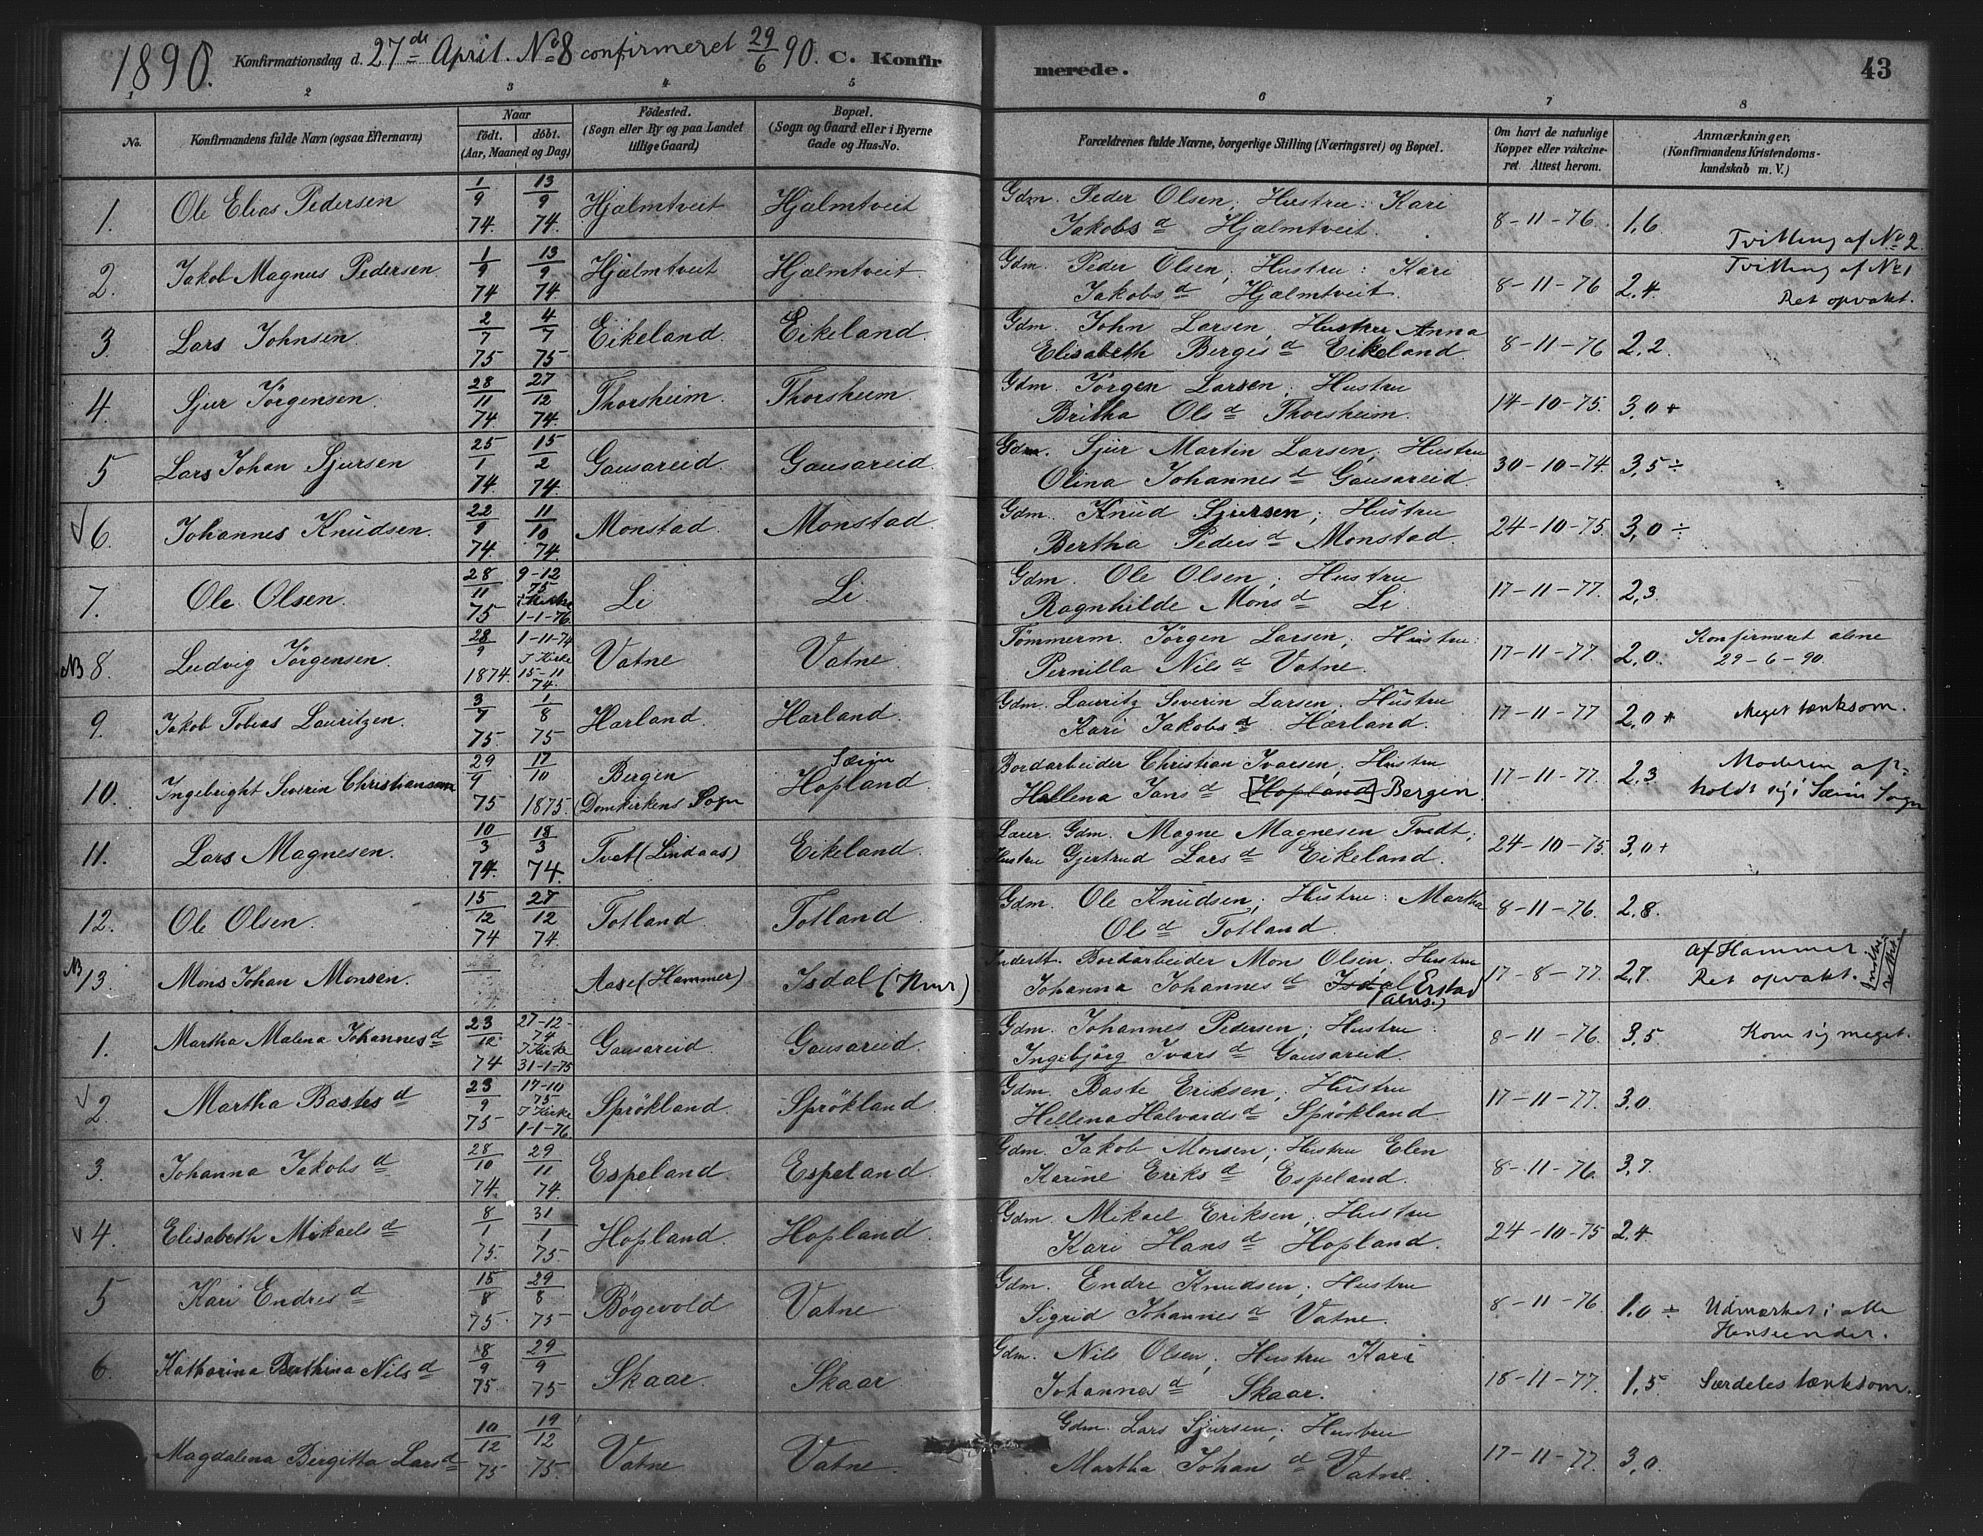 1890. Konfirmationsdag d. 27de April. No 8 confirmeret 29/6 90. C. Konfirmerede. 43
1 2 3 4 5 6 7 8
No. Konfirmandens fulde Navn (ogsaa Efternavn) Naar født. døbt. (Aar, Maaned og Dag) Fødested. (Sogn eller By og paa Landet tillige Gaard) Bopæl. (Sogn og Gaard eller i Byerne Gade og Hus-No. Forældrenes fulde Navne, borgerlige Stilling (Næringsvei) og Bopæl. Om havt de naturlige Kopper eller vakcineret Attest herom. Anmærkninger, (Konfirmandens Kristendomskundskab m. V.)
1. Ole Elias Pedersen 1/9 74. 13/9 74. Hjælmtveit Hjælmtveit Gdm. Peder Olsen, Hustru: Kari Jakobsd Hjælmtveit. 8-11-76. 1,6 Tvilling af No 2.
2. Jakob Magnus Pedersen 1/9 74 13/9 74. Hjælmtveit Hjælmtveit Gdm. Peder Olsen, Hustru: Kari Jakobsd Hjælmtveit. 8-11-76 2,4. Tvilling af No 1 Ret opvakt.
3. Lars Johnsen 2/7 75 4/7 75 Eikeland. Eikeland. Gdm. John Larsen, Hustru Anna Elisabeth Bergesd Eikeland 8-11-76 2,2.
4. Sjur Jörgensen 28/11 74 27/12 74. Thorsheim. Thorsheim Gdm. Jörgen Larsen, Hustru Britha Olsd Thorsheim. 14-10-75. 3,0+
5 Lars Johan Sjursen 25/1 74. 15/2 74. Gausareid. Gausareid. Gdm. Sjur Martin Larsen, Hustru Olina Johannesd Gausareid. 30-10-74. 3,5÷
√6. Johannes Knudsen. 22/9 74. 11/10 74. Monstad Monstad Gdm. Knud Sjursen; Hustru Bertha Pedersd Monstad. 24-10-75. 3,0÷
7. Ole Olsen. 28/11 75 9-12 75 i Kirke 1-1-76. Li Li. Gdm. Ole Olsen, Hustru Ragnhilde Monsd Li. 17-11-77. 2,3.
NB 8. Ludvig Jörgensen. 28/9 1874. 1-11-74 I Kirke 15-11 74. Vatne Vatne Tömmerm. Jörgen Larsen, Hustru: Pernilla Nilsd Vatne. 17-11-77. 2,0. Konfirmeret alene 29-6-90.
9. Jakob Tobias Lauritzen. 3/7 75. 1/8 75 Harland. Harland. Gdm. Lauritz Severin Larsen, Hustru Kari Jakobsd Harland. 17-11-77 2,0+ Meget tænksom.
10. Ingebright Severin Christiansen 29/9 75 17/10 1875. Bergen (Domkirkens Sogn Sæim Hopland. Bordarbeider Christian Ivarsen, Hustru Hellena Jansd [Hopland] Bergen. 17-11-77. 2,3 Moderen opholdt sig i Sæim Sogn
11. Lars Magnesen. 10/3 74. 18/3 74. Tvet (Lindaas) Eikeland. Lærer. Gdm. Magne Magnesen Tvedt; Hustru Gjertrud Larsd Eikeland. 24-10-75. 3,0+
12. Ole Olsen. 15/12 74 27/12 74. Totland Totland Gdm. Ole Knudsen, Hustru: Martha Olsd Totland. 8-11-76. 2,8.
NB 13. Mons Johan Monsen. Aase (Hammer) Isdal (Hmr) Inderst. Bordarbeider Mons Olsen, Hustru Johanna Johannesd Isdal Erstad 17-8-77. 2,7. Af Hammer. Ret opvakt.
1. Martha Malena Johannesd 23/12 74 27-12-74 I Kirke 31-1-75 Gausareid. Gausareid. Gdm. Johannes Pedersen, Hustru: Ingebjörg Ivarsd Gausareid. 8-11-76. 3,5 Kom sig meget.
√2. Martha Bastesd 23/9 75 17-10 75 I Kirke 1-1-76 Sprökland. Sprökland. Gdm. Baste Eriksen, Hustru Hellena Halvardsd Sprökland. 17-11-77. 3,0.
3. Johanna Jakobsd 28/10 74. 29/11 74. Espeland Espeland. Gdm. Jakob Monsen, Hustru Elen Karine Eriksd Espeland. 8-11-76. 3,7.
√4. Elisabeth Mikaelsd 8/1 75. 31/1 75. Hopland. Hopland. Gdm. Mikael Eriksen, Hustru Kari Hansd Hopland. 24-10-75 2,4
5 Kari Endresd 15/8 75. 29/8 75. Bögevold Vatne Gdm. Endre Knudsen, Hustru Sigrid Johannesd Vatne. 8-11-76. 1,0÷ Udmærket i alle Henseender.
6. Katharina Berthina Nilsd 8/9 75. 29/9 75 Skaar. Skaar. Gdm. Nils Olsen, Hustru Kari Johannesd Skaar. 18-11-77. 1,5 Særdeles tænksom.
Magdalena Birgitta Larsd 10/12 75 19/12 75. Vatne Vatne. Gdm. Lars Sjursen, Hustru Martha Johansd Vatne. 17-11-77. 3,0.